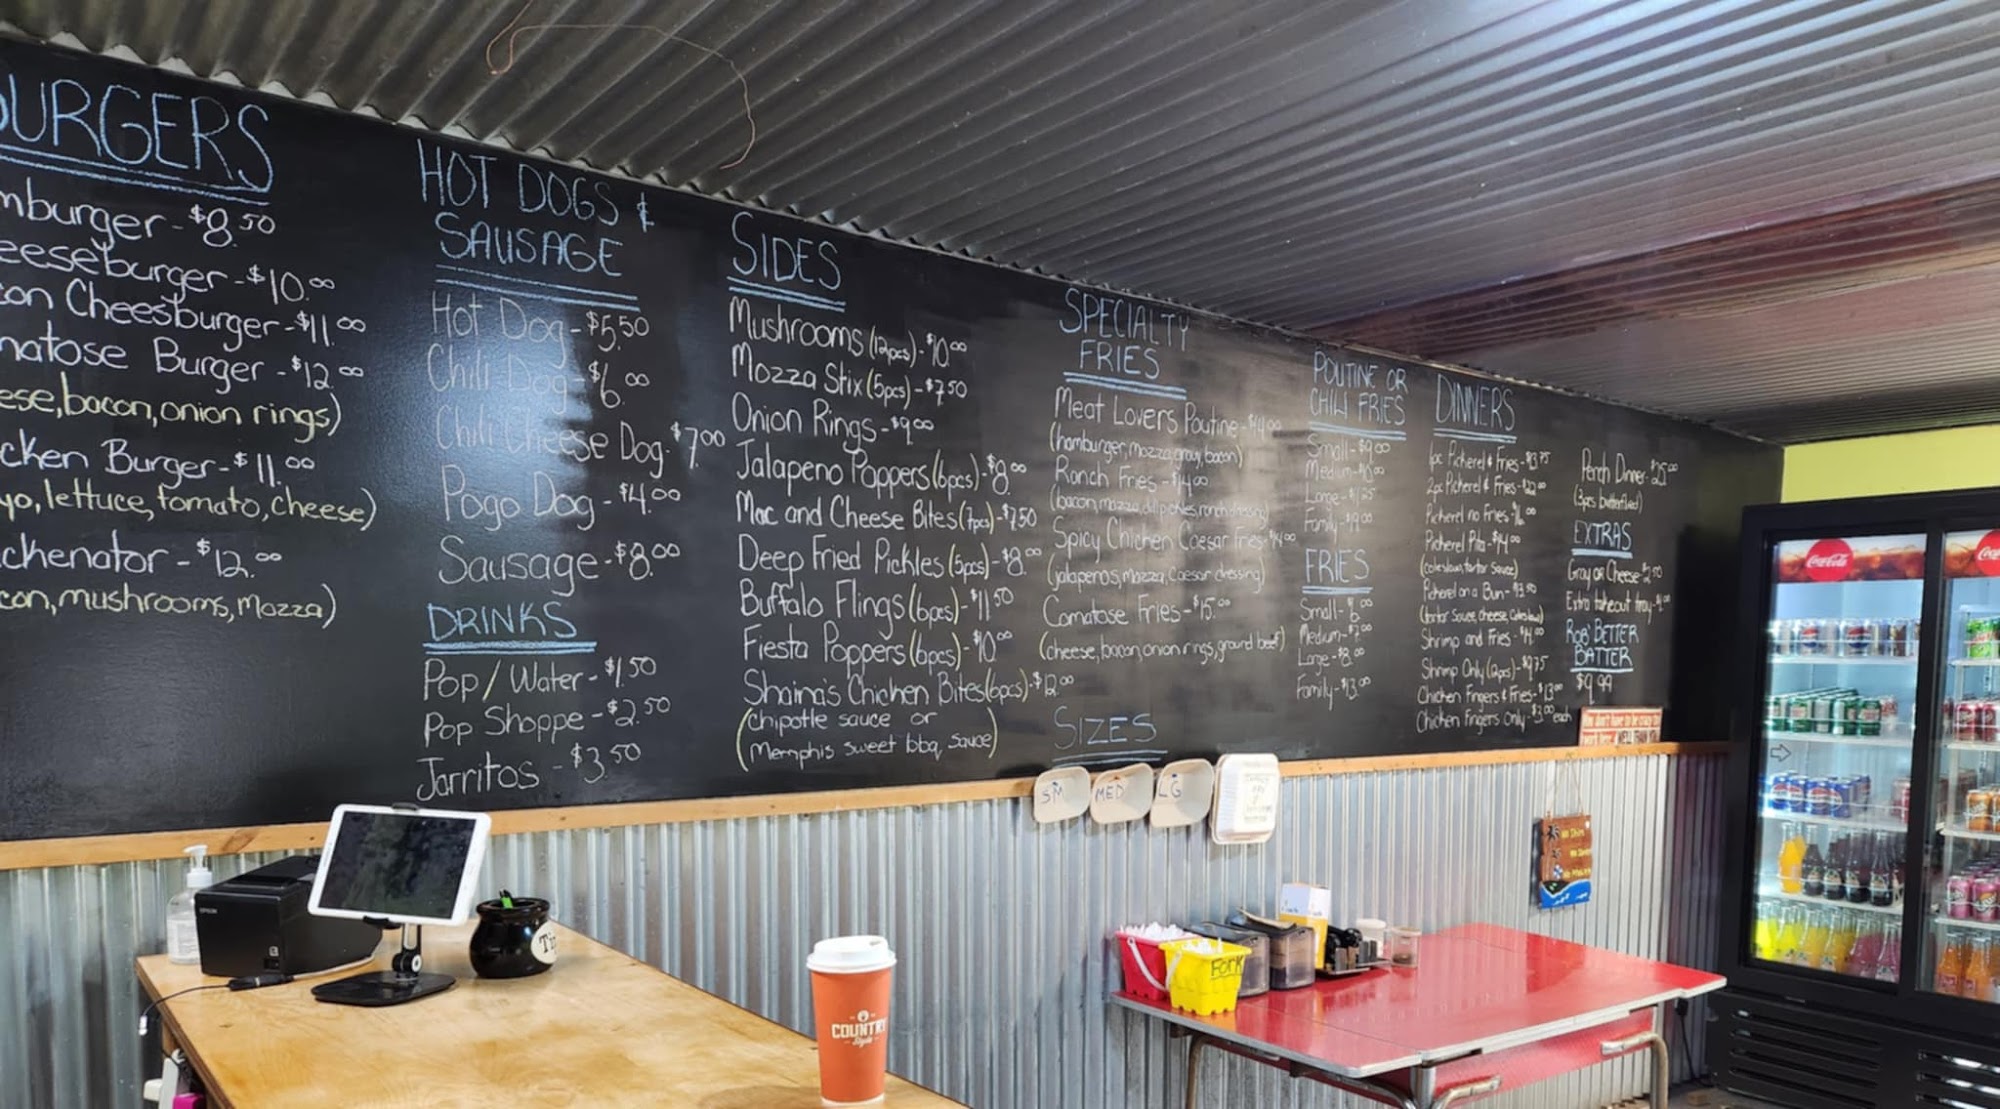 BURGERS
mburger - $8.50
eeseburger - $10.00
con Cheesburger - $11.00
matose Burger - $12.00
ese, bacon, onion rings)
cken Burger - $11.00
yo, lettuce, tomato, cheese)
ckenator - $12.00
con, mushrooms, Mozza)
HOT DOGS &
SAUSAGE
Hot Dog - $5.50
Chili Dog - $6.00
Chili Cheese Dog - $7.00
Pogo Dog - $4.00
Sausage - $8.00
DRINKS
Pop/Water - $1.50
Pop Shoppe - $2.50
Jarritos - $3.50
SIDES
Mushrooms (12pcs) - $10.00
Mozza Stix (5pcs) - $7.50
Onion Rings - $9.00
Jalapeno Poppers (6pcs) - $8.00
Mac and Cheese Bites (7pcs) - $7.50
Deep Fried Pickles (5pcs) - $8.00
Buffalo Flings (6pcs) - $11.50
Fiesta Poppers (6pcs) - $10.00
Shaina's Chicken Bites (6pcs) - $12.00
(chipotle sauce or
Memphis sweet bbq, sauce)
SPECIALTY
FRIES
Meat Lovers Poutine - $14.00
(hamburger, mozza, gravy, bacon)
Ranch Fries - $14.00
(bacon, mozza, dill pickles, ranch dressing)
Spicy Chicken Caesar Fries - $14.00
(jalapenos, mozza, caesar dressing)
Comatose Fries - $15.00
(cheese, bacon, onion rings, ground beef)
SIZES
SM
MED
LG
POUTINE OR
CHILI FRIES
Small - $9.00
Medium - $10.00
Large -
Family -
FRIES
Small - $6.00
Medium - $7.00
Large - $8.00
Family - $13.00
DINNERS
1pc Pickerel & Fries - $13.75
2pc Pickerel & Fries - $22.00
Pickerel no Fries -
Pickerel Pita - $14.00
(coleslaw, tartar sauce)
Pickerel on a Bun - $13.50
(tartar sauce, cheese, coleslaw)
Shrimp and Fries - $14.00
Shrimp Only (12pcs) - $9.75
Chicken Fingers & Fries - $13.00
Chicken Fingers Only - $3.00 each
Perch Dinner - $25.00
(3pcs butterflied)
EXTRAS
Gravy or Cheese - $2.50
Extra takeout tray - $1.00
ROB' BETTER
BATTER
$9.99
You don't have to be crazy to
Coca-Cola
Coca
EPSON
Ti
COUNTRY
Style
FORK